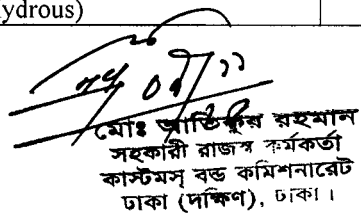 ydrous)
মোঃ আতিকুর রহমান
সহকারী রাজস্ব কর্মকর্তা
কাস্টমস্ বন্ড কমিশনারেট
ঢাকা (দক্ষিণ), ঢাকা।